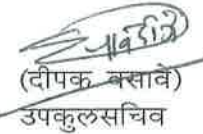 (दीपक वसावे)
उपकुलसचिव